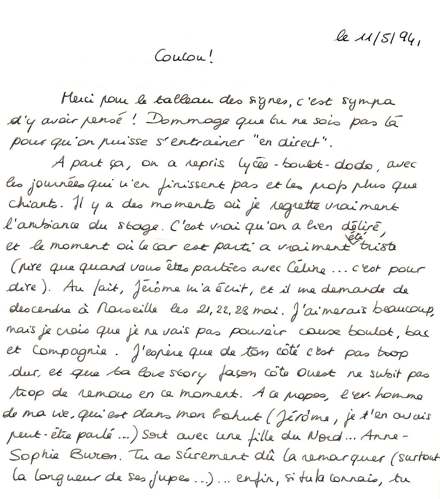 le 11/5/94,
Coucou!
Merci pour le tableau des signes, c'est sympa
d'y avoir pensé! Dommage que tu ne sois pas là
pour qu'on puisse s'entrainer "en direct".
A part ça, on a repris lycée-boulot-dodo, avec
les journées qui n'en finissent pas et les profs plus que
chiants. Il y a des moments où je regrette vraiment
l'ambiance du stage. C'est vrai qu'on a bien déliré,
et le moment où le car est parti a vraiment été triste
(pire que quand vous êtes parties avec Céline... c'est pour
dire). Au fait, Jérôme m'a écrit, et il me demande de
descendre à Marseille les 21, 22, 23 mai. J'aimerais beaucoup,
mais je crois que je ne vais pas pouvoir cause boulot, bac
et compagnie. J'espère que de ton côté c'est pas trop
dur, et que ta love story façon côte Ouest ne subit pas
trop de remous en ce moment. A ce propos, l'ex-homme
de ma vie, qui est dans mon bahut (Jérôme, je t'en avais
peut-être parlé...) sort avec une fille du Nord... Anne-
Sophie Buron. Tu as sûrement dû la remarquer (surtout
la longueur de ses jupes...)... enfin, si tu la connais, tu